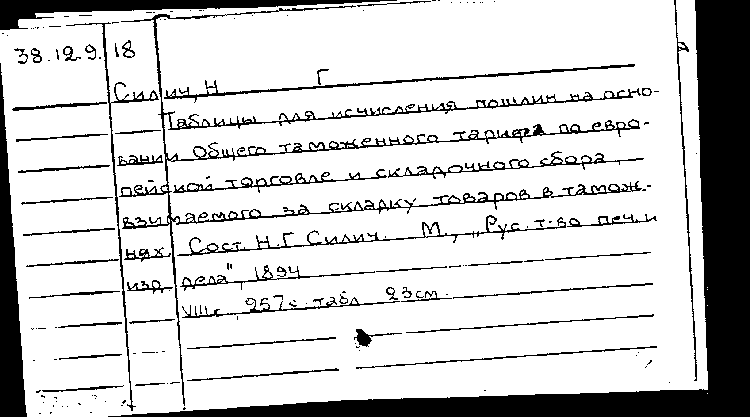 38.12.9.18
Силич, Н Г
Таблицы для исчисления пошлин на осно-
вании Общего таможенного тарифа по евро-
пейской торговле и складочного сбора, —
взимаемого за складку товаров в тамож-
нях. Сост. Н.Г. Силич. М., „Рус. т-во печ. и
изд. дела", 1894
VIII с., 257 с. табл. 23 см.